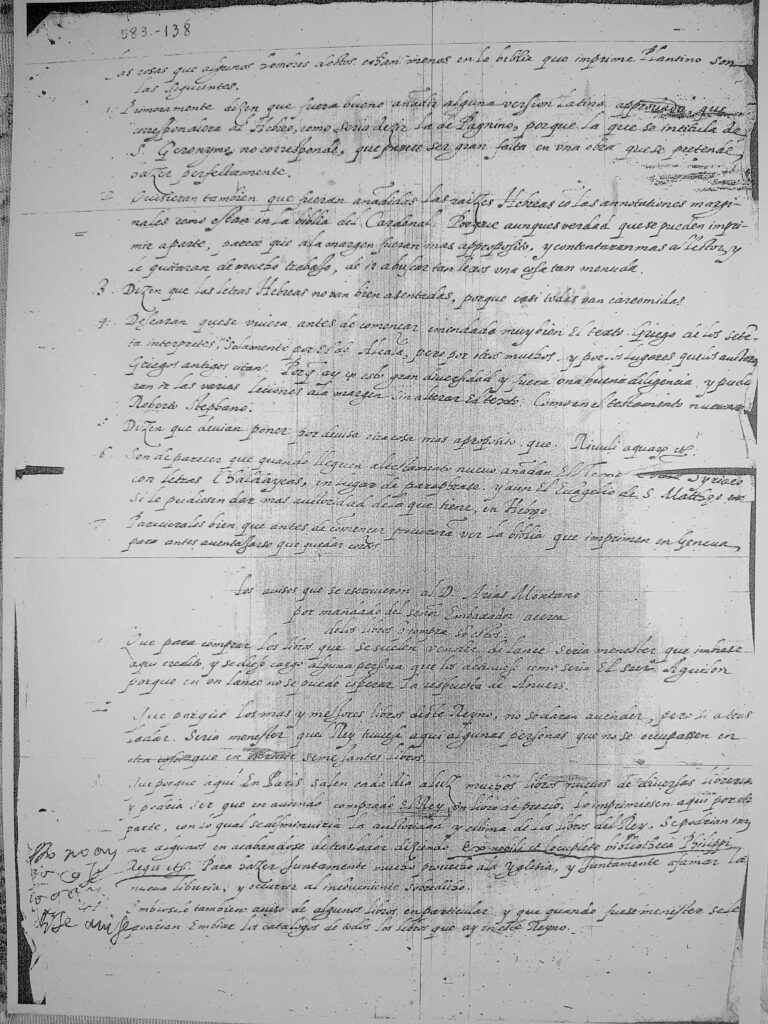 583.-138
Las cosas que algunos hombres doctos echan menos en la biblia que imprime Plantino son
las siguientes.
1. Primeramente dizen que fuera bueno añadir alguna version latina approuada que
correspondiera al Hebreo, como seria dezir la de Pagnino, porque la que se intitula de
S. Geronymo, no corresponde, que parece ser gran falta en vna obra que se pretende
hazer perfectamente.
2. Quisieran tambien que fueran añadidas las raizes Hebreas cō las annotationes margi-
nales como estan en la biblia del Cardenal. Porque aunques verdad que se pueden impri-
mir a parte, parece que a la margen fueran mas approposito, y contentaran mas al lector, y
le quitaran de mucho trabajo, de ir a buscar tan lexos vna cosa tan menuda.
3. Dizen que las letras Hebreas no van bien asentadas, porque casi todas van carcomidas
4. Desearan que se viera, antes de començar, emendado muy bien El texto Griego de los sete-
ta interpretes, solamente por El de Alcala, pero por otros muchos, y por los lugares que los auctores
Griegos antigos citan. Porq̄ ay en esto gran diuersidad y fuera vna buena diligencia, y pudie
ran ir las varias lectiones a la margen sin alterar El texto: Como en el testamento nueuo
Roberto Stephano.
5. Dizen que deuian poner por deuisa otra cosa mas aproposito, que Riuuli aquar̄
6. Son de parecer que quando lleguen al testamento nueuo añadan El Syriaco
con letras Chaldaycas, en lugar de paraphrasi. y aun El Euāgelio de S. Mattheo
Si le pudiesen dar mas auctoridad de la que tiene, en Hebreo
7. Pareciales bien que antes de començar procurara ver la biblia que imprimen en Geneua,
para antes auentajarse que quedar cortos.
Los auisos que se escriuieron al D. Arias Montano
por mandado del señor Embaxador acerca
de los libros y compra
Que para comprar los libros que se suelen vender de lance seria menester que
aqui credito, y se diese cargo alguna persona que los como seria El secr.º Aguilon
porque en vn lance no se puede esperar la respuesta de Anuers.
Que porque los mas y mejores libros deste Reyno, no se daran a vender, pero si a tras
ladar. Seria menester que El Rey tuuiese aqui algunas personas que no se ocupassen en
otra cosa que en semejantes libros.
Que porque aqui En Paris salen cada dia a luz muchos libros nueuos de diuersas librerias
y podria ser que en auiendo comprado El Rey vn libro a precio, lo imprimiesen aqui por otra
parte, con lo qual se disminuiria la auctoridad y estima de los libros del Rey. Se podrian im
mir algunos en acabandose de trasladar diziendo, Ex nobili et locuplete bibliotheca Philippi
Regis etc. Para hazer juntamente mucho prouecho a la Yglesia, y juntamente afamar la
nueua libreria, y occurrir al inconueniente sobredicho.
Embiosele tambien auiso de algunos libros en particular y que quando fuese menester se le
podrian Embiar los catalogos de todos los libros que ay en este Reyno.